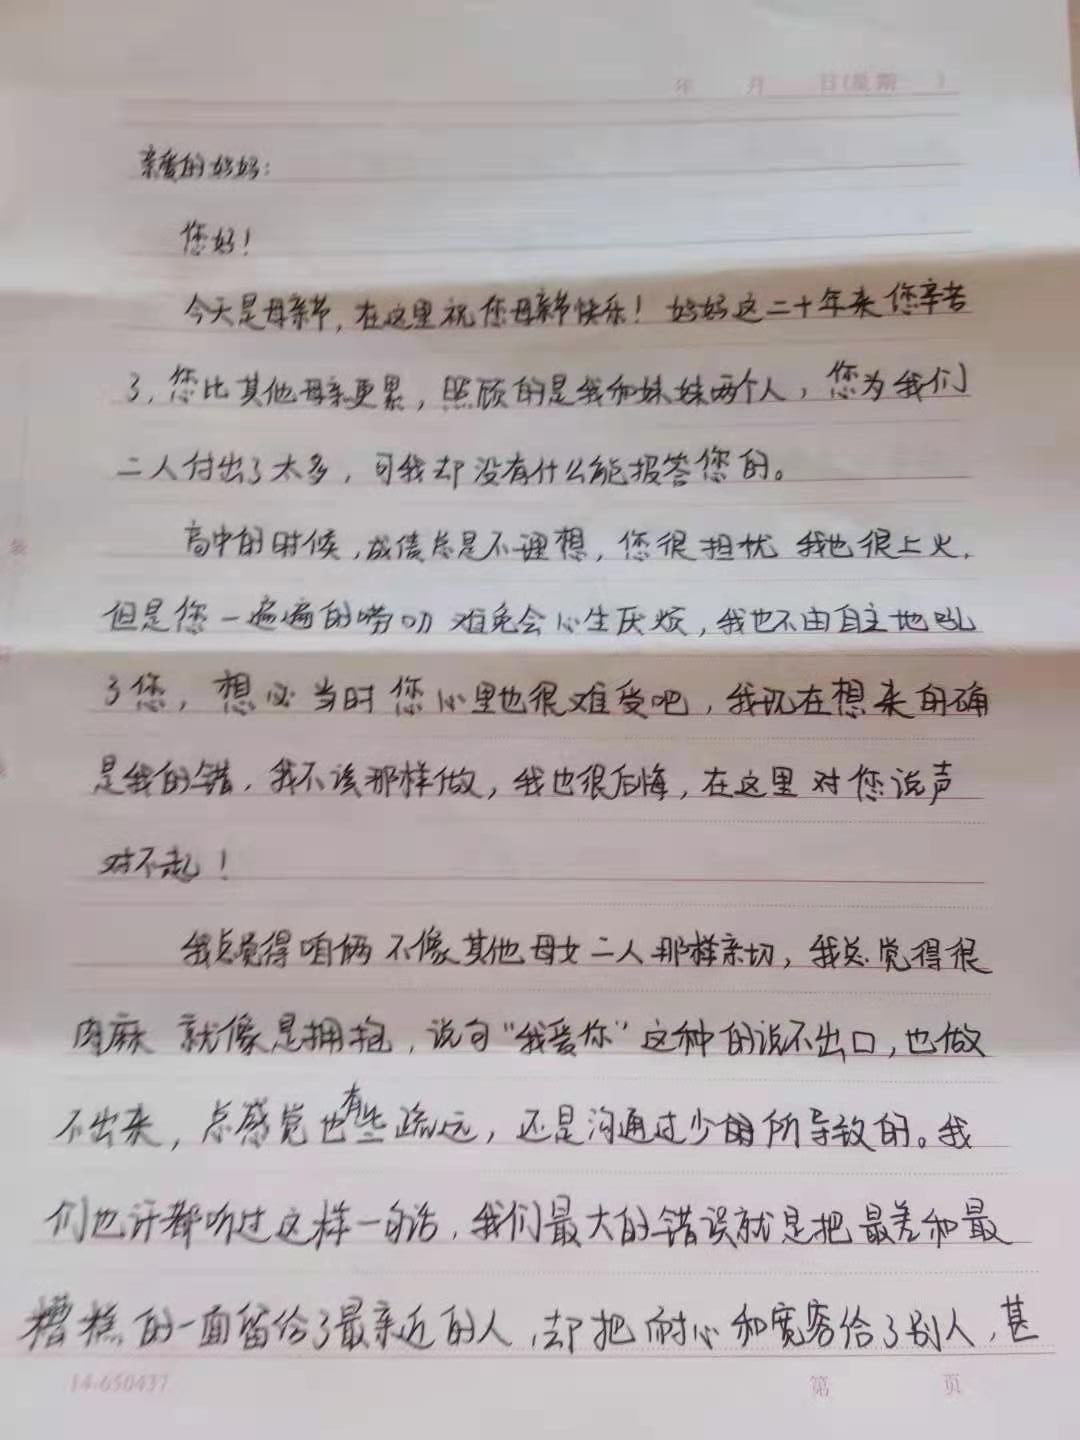 年 月 日(星期 )
亲爱的妈妈：
您好！
今天是母亲节，在这里祝您母亲节快乐！妈妈这二十年来您辛苦
了，您比其他母亲更累，照顾的是我和妹妹两个人，您为我们
二人付出了太多，可我却没有什么能报答您的。
高中的时候，成绩总是不理想，您很担忧 我也很上火，
但是您一遍遍的唠叨 难免会心生厌烦，我也不由自主地吼
了您，想必当时您心里也很难受吧，我现在想来的确
是我的错，我不该那样做，我也很后悔，在这里对您说声
对不起！
我总觉得咱俩不像其他母女二人那样亲切，我总觉得很
肉麻 就像是拥抱，说句“我爱你”这种的说不出口，也做
不出来，总感觉也有些疏远，还是沟通过少的所导致的。我
们也许都听过这样一句话，我们最大的错误就是把最差和最
糟糕的一面留给了最亲近的人，却把耐心和宽容给了别人，甚
14-650437 第 页